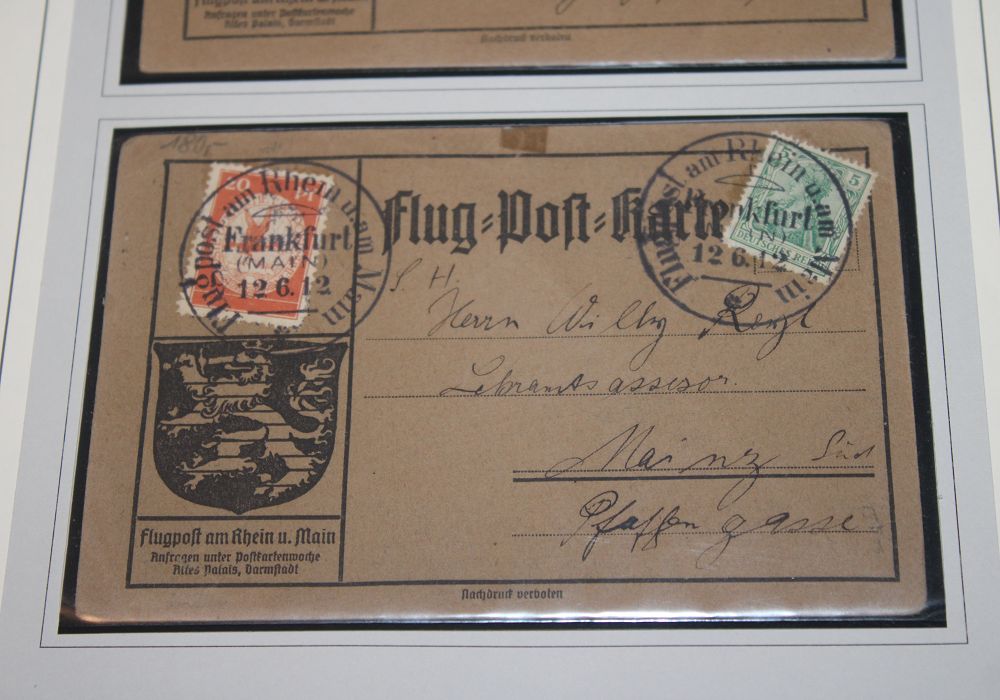 Flugpost am Rhein u. Main
Anfragen unter Postkartenwoche
Altes Palais, Darmstadt
Nachdruck verboten
180,-
20 Pf
Flugpost am Rhein u. am Main
Frankfurt
(MAIN)
12.6.12
Flug-Post-Karte
5
DEUTSCHES REICH
Flugpost am Rhein u. am Main
Frankfurt
12.6.12
S. H.
Herrn Willy Renzl
Lehramtsassessor.
Mainz Süd
Pfaffengasse
Flugpost am Rhein u. Main
Anfragen unter Postkartenwoche
Altes Palais, Darmstadt
Nachdruck verboten